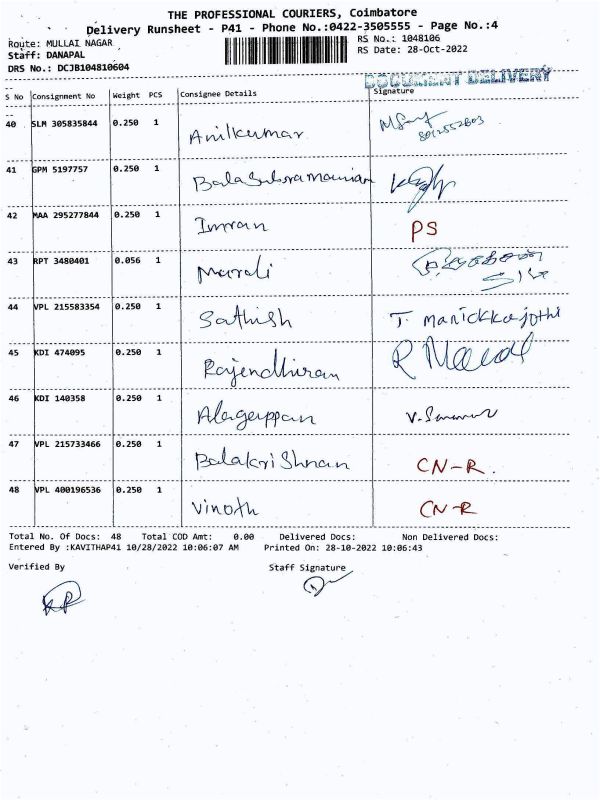 THE PROFESSIONAL COURIERS, Coimbatore
Delivery Runsheet - P41 - Phone No.:0422-3505555 - Page No.:4
Route: MULLAI NAGAR RS No.: 1048106
Staff: DANAPAL RS Date: 28-Oct-2022
DRS No.: DCJB104810604
DOCUMENT DELIVERY
S No Consignment No Weight PCS Consignee Details Signature
40 SLM 305835844 0.250 1 Anilkumar
41 GPM 5197757 0.250 1 Balasubramanian
42 MAA 295277844 0.250 1 Imran PS
43 RPT 3480401 0.056 1 Murali
44 VPL 215583354 0.250 1 Sathish T. Manickkajothi
45 KDI 474095 0.250 1 Rajendhiran
46 KDI 140358 0.250 1 Alagappan
47 VPL 215733466 0.250 1 BalakriShnan CN-R.
48 VPL 400196536 0.250 1 Vinoth CN-R
Total No. Of Docs: 48 Total COD Amt: 0.00 Delivered Docs: Non Delivered Docs:
Entered By :KAVITHAP41 10/28/2022 10:06:07 AM Printed On: 28-10-2022 10:06:43
Verified By Staff Signature